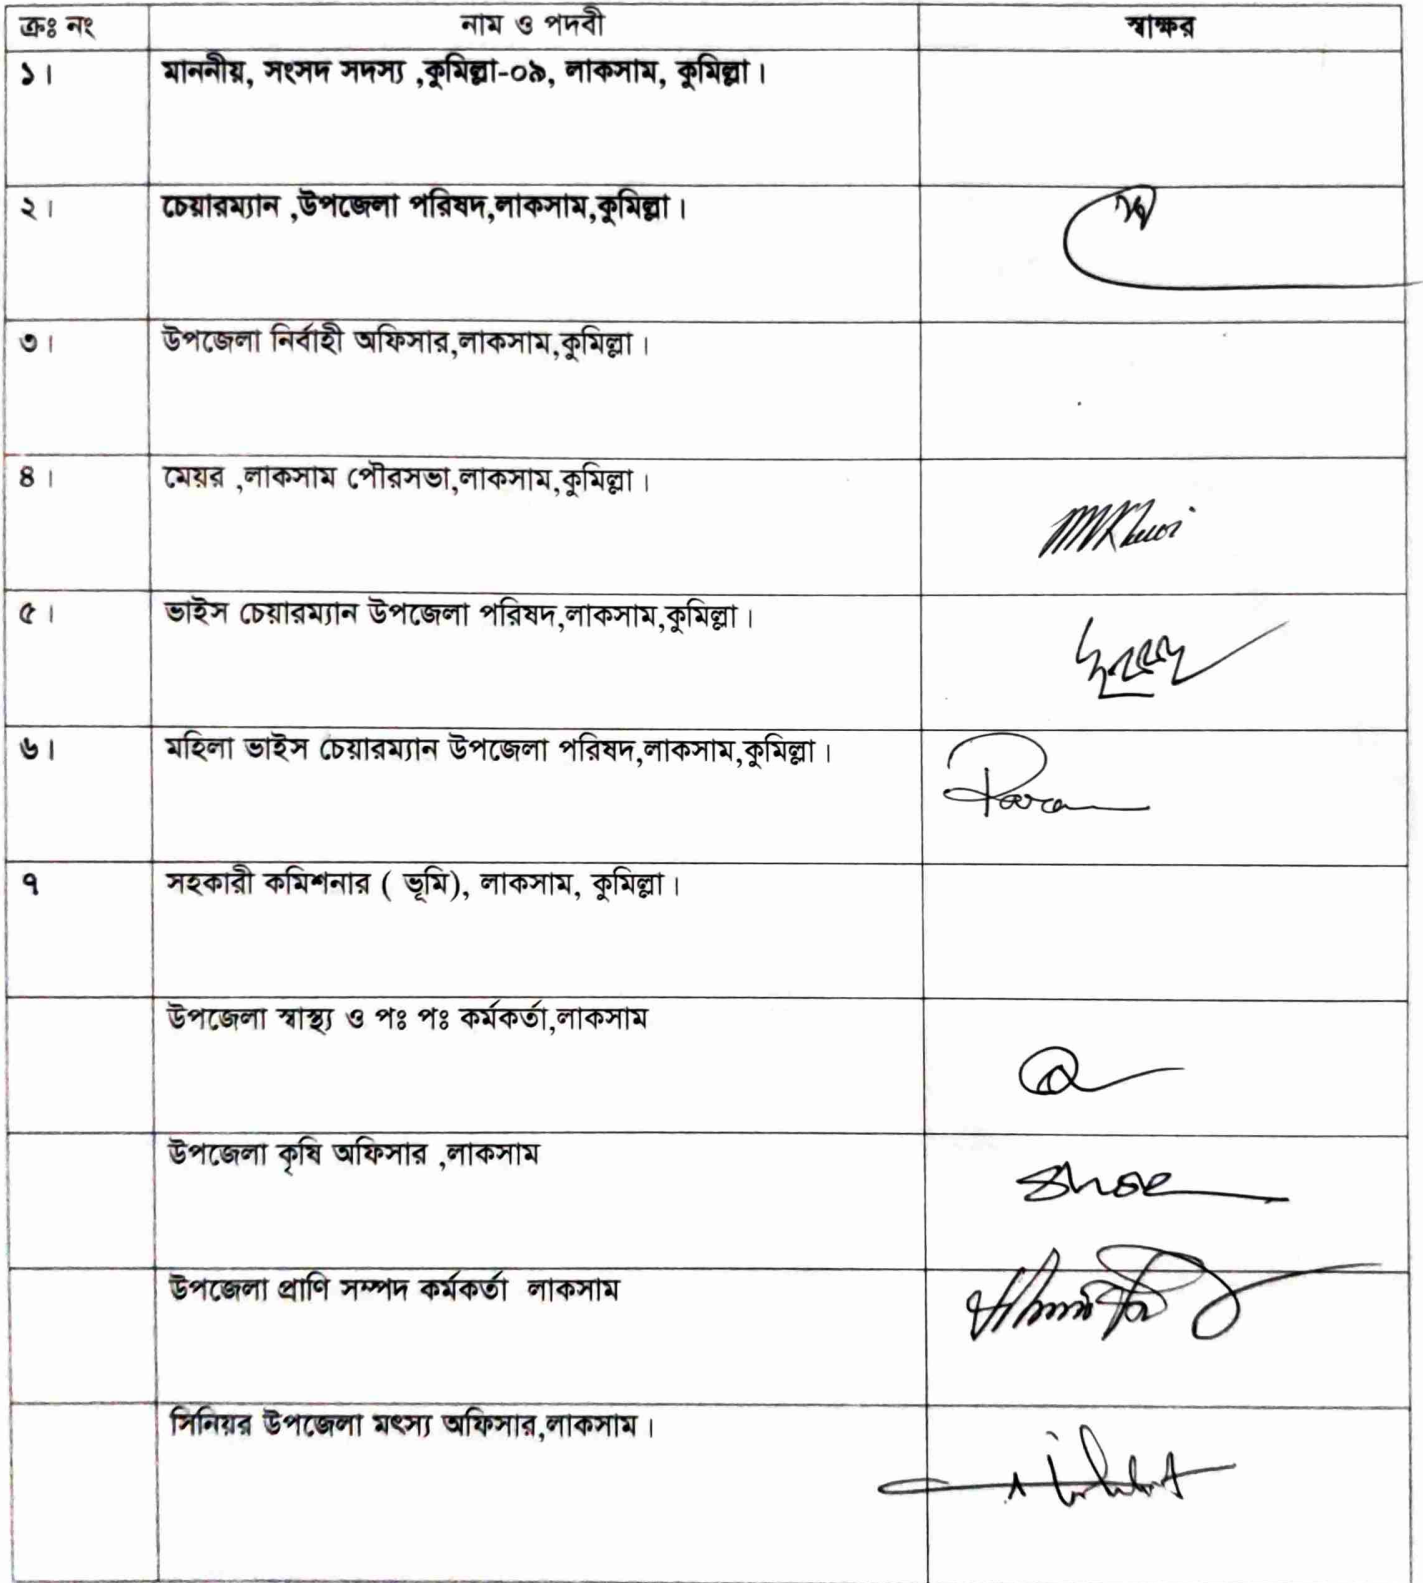 ক্রঃ নং নাম ও পদবী স্বাক্ষর
১। মাননীয়, সংসদ সদস্য ,কুমিল্লা-০৯, লাকসাম, কুমিল্লা।
২। চেয়ারম্যান ,উপজেলা পরিষদ,লাকসাম,কুমিল্লা।
৩। উপজেলা নির্বাহী অফিসার,লাকসাম,কুমিল্লা।
৪। মেয়র ,লাকসাম পৌরসভা,লাকসাম,কুমিল্লা।
৫। ভাইস চেয়ারম্যান উপজেলা পরিষদ,লাকসাম,কুমিল্লা।
৬। মহিলা ভাইস চেয়ারম্যান উপজেলা পরিষদ,লাকসাম,কুমিল্লা।
৭ সহকারী কমিশনার ( ভূমি), লাকসাম, কুমিল্লা।
উপজেলা স্বাস্থ্য ও পঃ পঃ কর্মকর্তা,লাকসাম
উপজেলা কৃষি অফিসার ,লাকসাম
উপজেলা প্রাণি সম্পদ কর্মকর্তা লাকসাম
সিনিয়র উপজেলা মৎস্য অফিসার,লাকসাম।